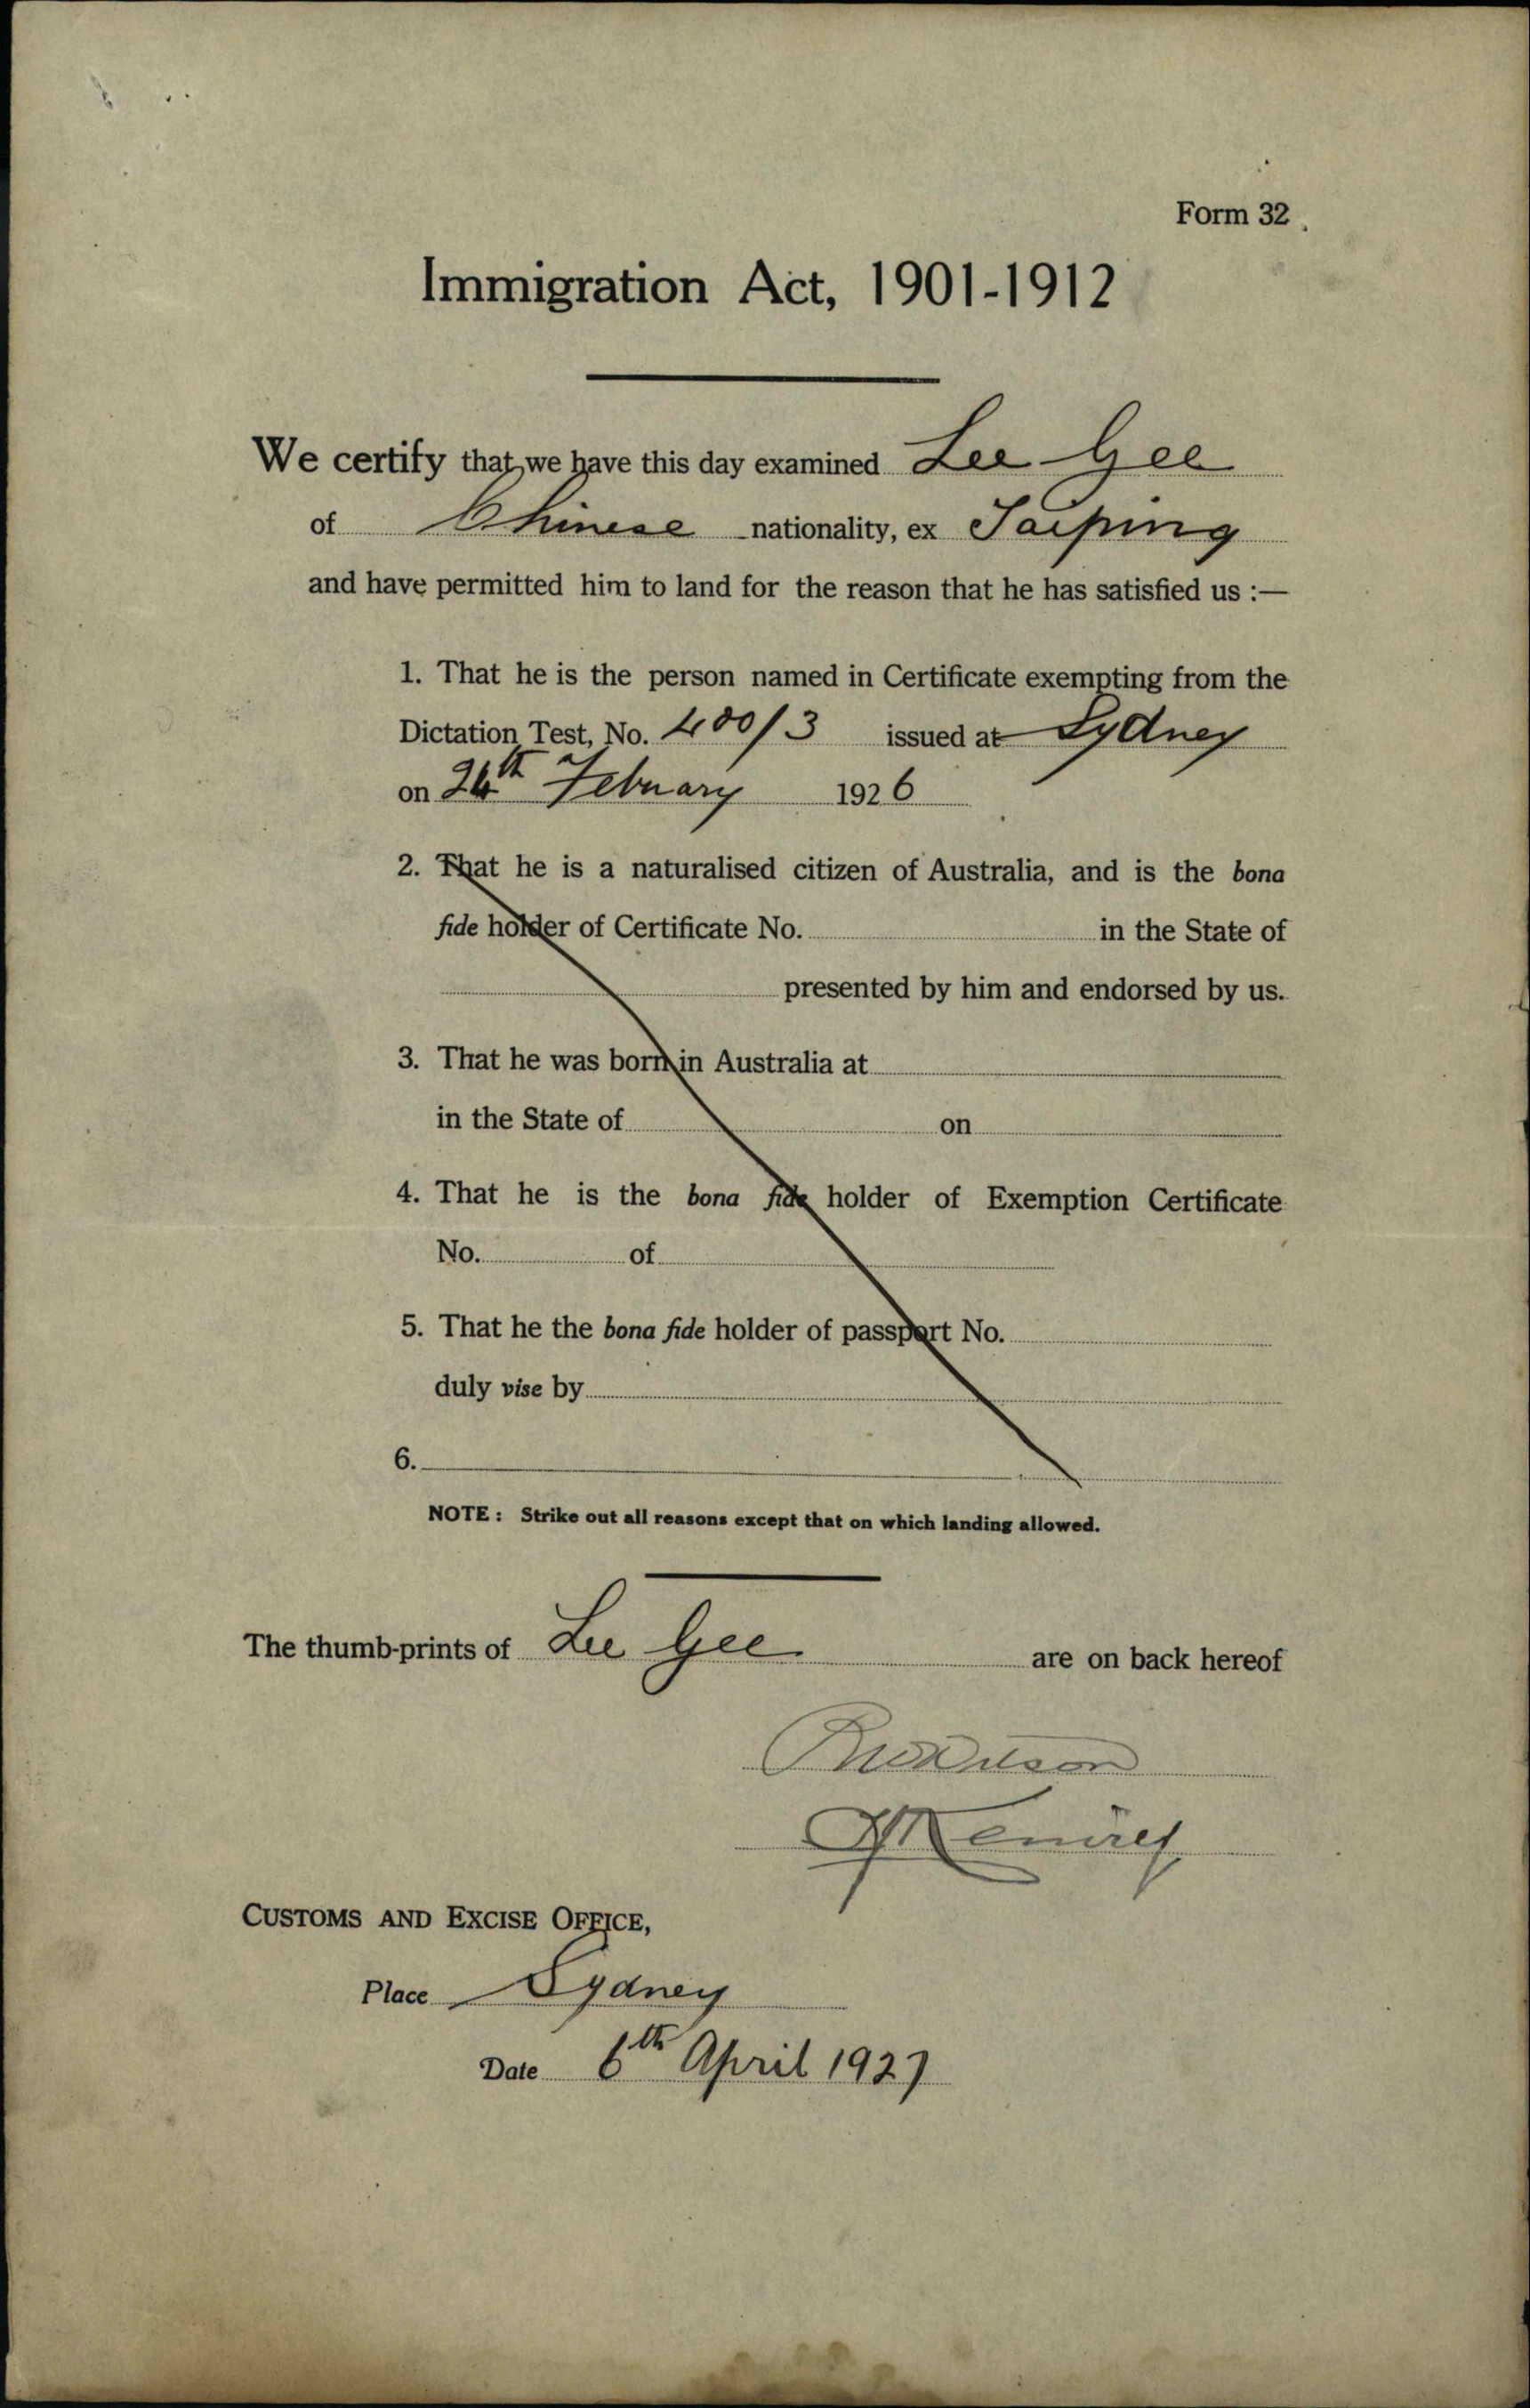 Form 32
Immigration Act, 1901-1912
We certify that we have this day examined Lee Gee
of Chinese nationality, ex Taiping
and have permitted him to land for the reason that he has satisfied us :—
1. That he is the person named in Certificate exempting from the
Dictation Test, No. 400/3 issued at Sydney
on 24th February 1926
2. That he is a naturalised citizen of Australia, and is the bona
fide holder of Certificate No. in the State of
presented by him and endorsed by us.
3. That he was born in Australia at
in the State of on
4. That he is the bona fide holder of Exemption Certificate
No. of
5. That he the bona fide holder of passport No.
duly vise by
6.
NOTE : Strike out all reasons except that on which landing allowed.
The thumb-prints of Lee Gee are on back hereof
CUSTOMS AND EXCISE OFFICE,
Place Sydney
Date 6th April 1927